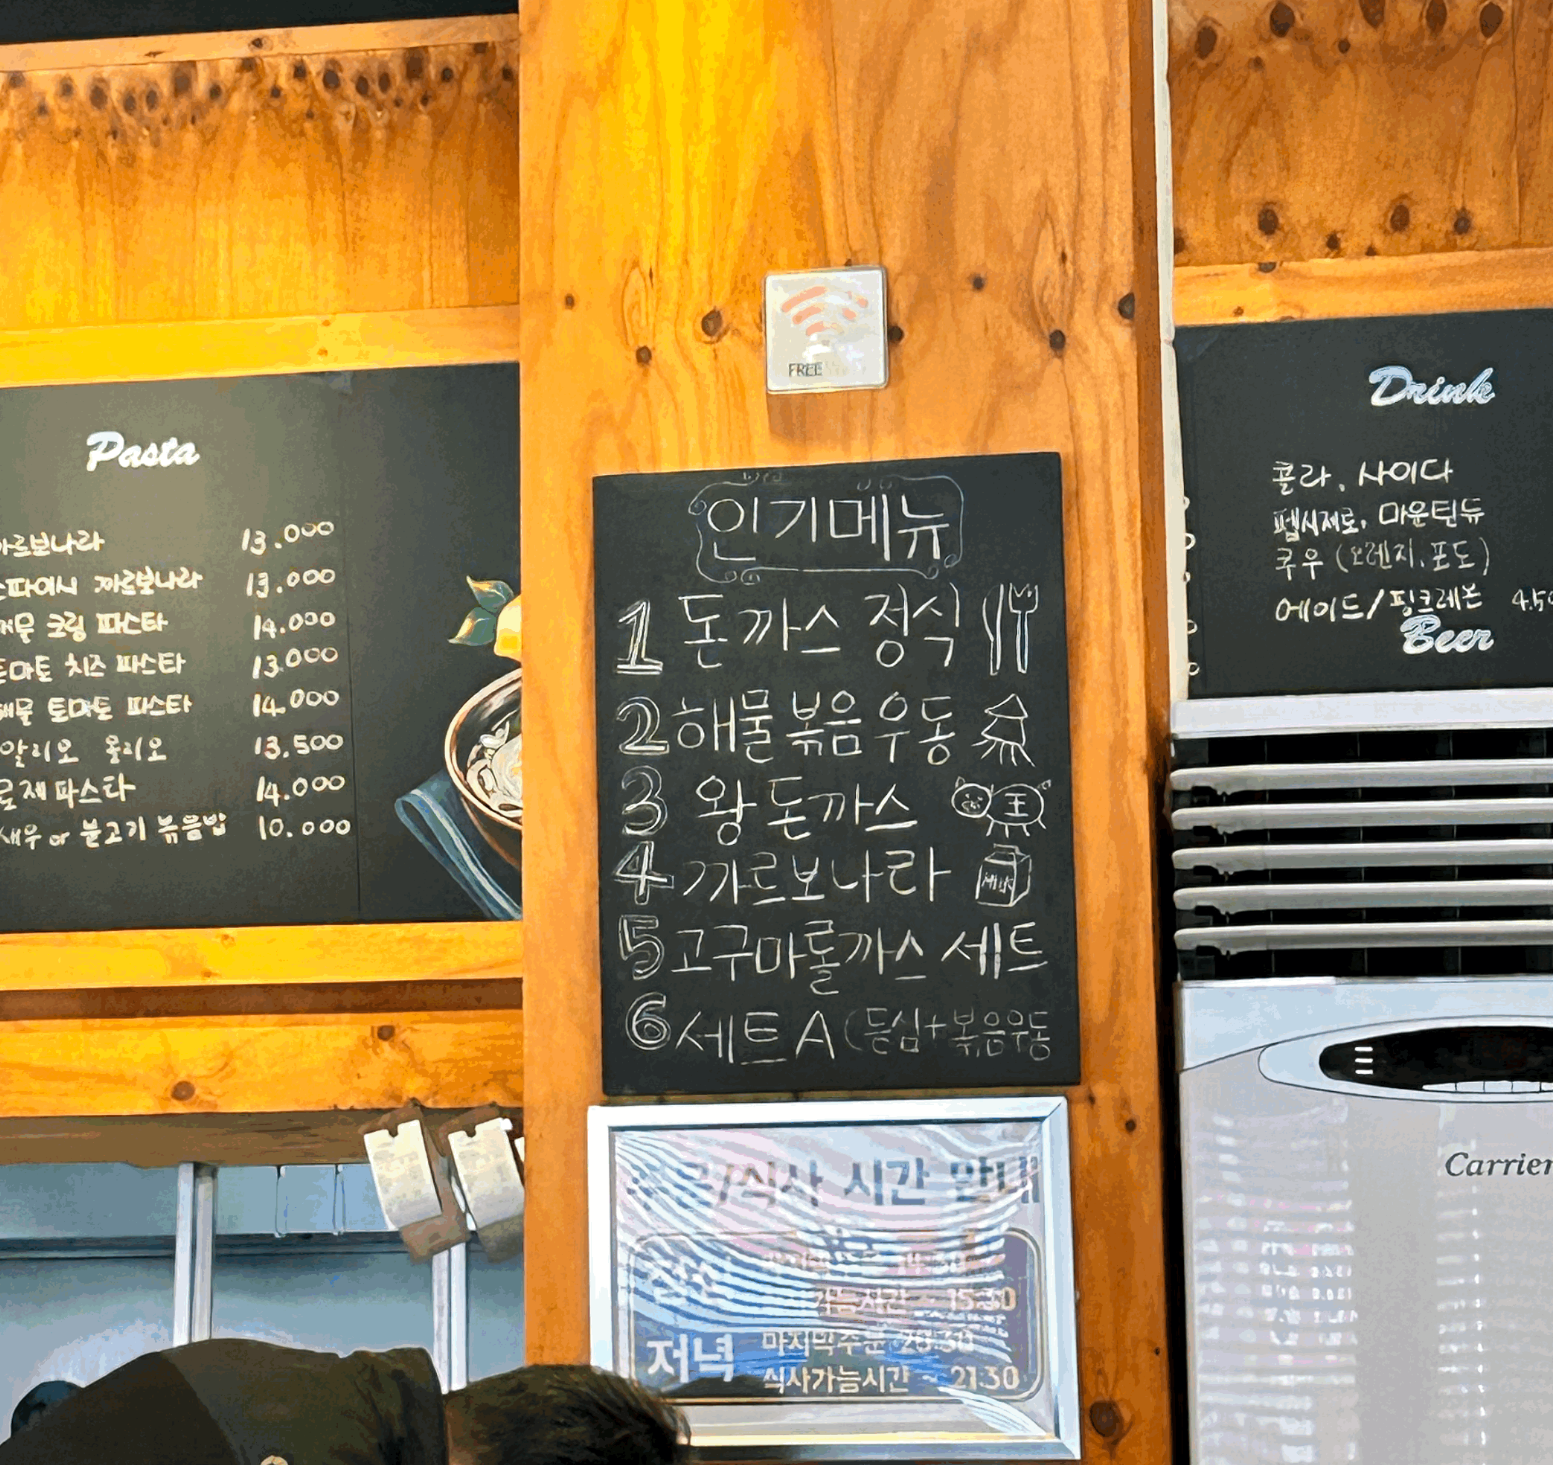 Pasta
까르보나라 13.000
스파이시 까르보나라 13.000
해물 크림 파스타 14.000
토마토 치즈 파스타 13.000
해물 토마토 파스타 14.000
알리오 올리오 13.500
로제파스타 14.000
새우 or 불고기 볶음밥 10.000
FREE
인기메뉴
1 돈까스 정식
2 해물볶음우동
3 왕돈까스
王
4 까르보나라
MILK
5 고구마롤까스 세트
6 세트A (등심+볶음우동
주문/식사 시간 안내
가능시간 ~ 15:30
저녁 마지막주문 20:30
식사가능시간 ~ 21:30
Drink
콜라, 사이다
펩시제로, 마운틴듀
쿠우 (오렌지, 포도)
에이드/핑크레몬
Beer
Carrier